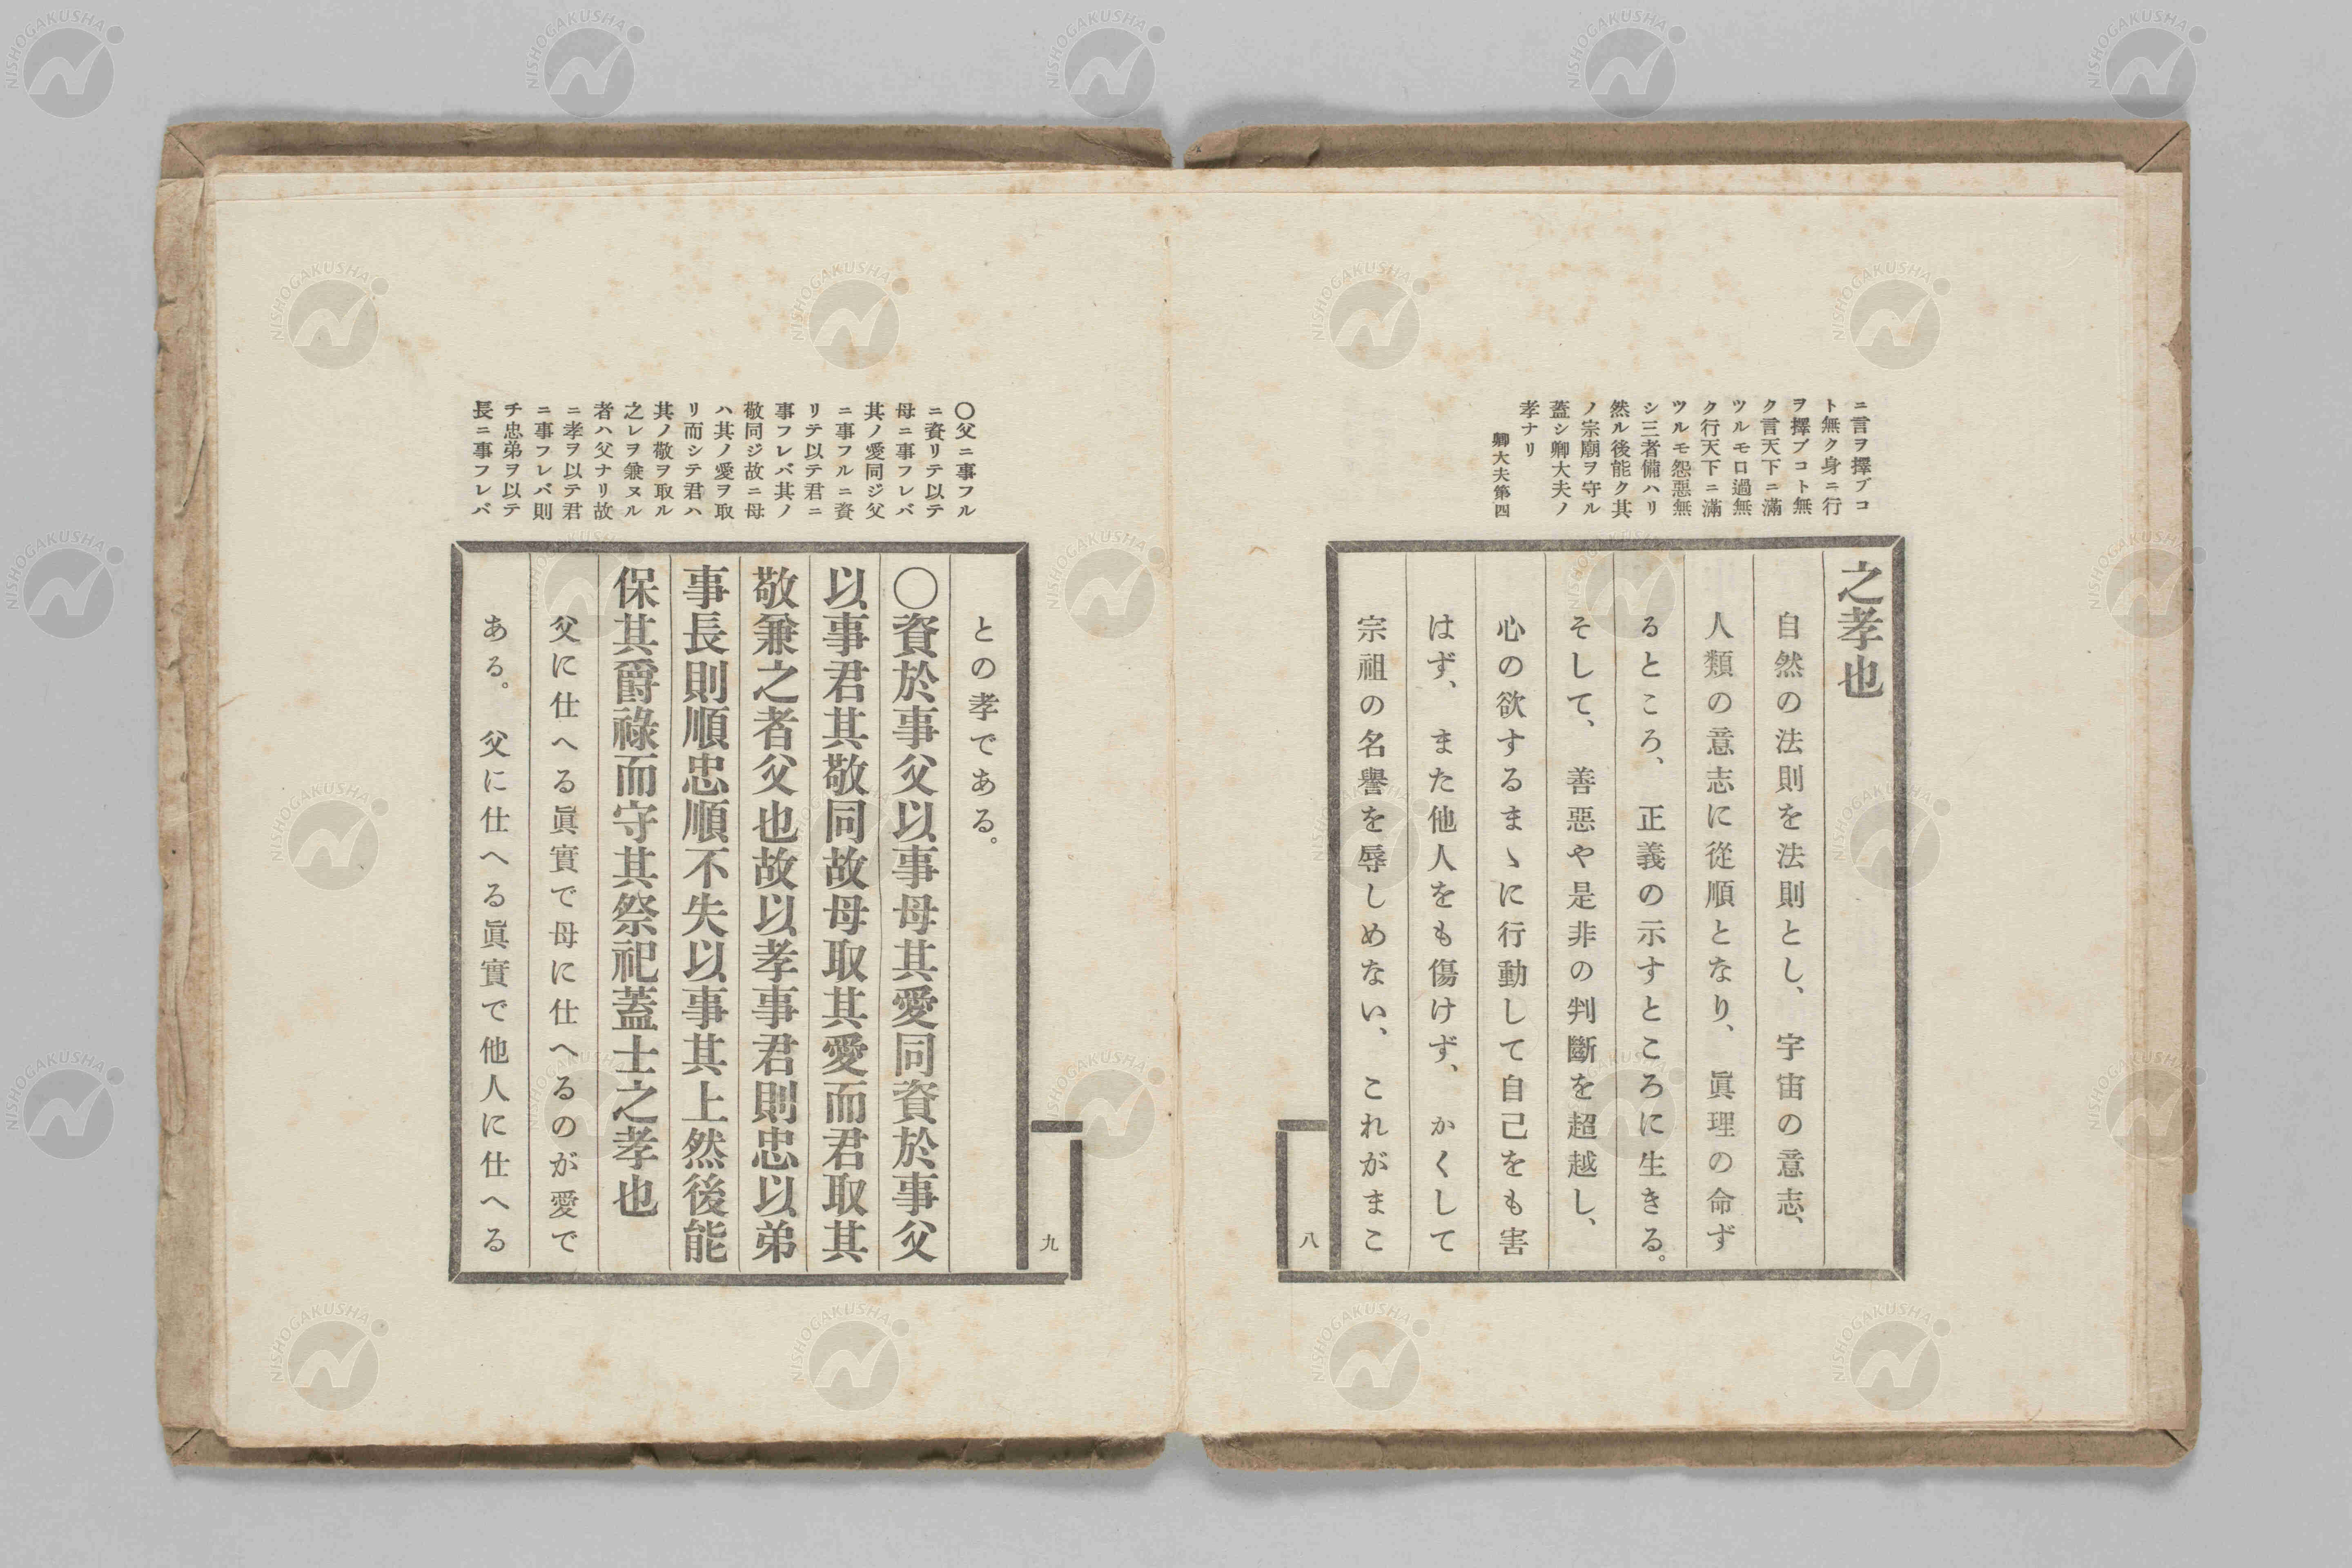 ニ言ヲ擇ブコ
ト無ク身ニ行
ヲ擇ブコト無
ク言天下ニ滿
ツルモ口過無
ク行天下ニ滿
ツルモ怨惡無
シ三者備ハリ
然ル後能ク其
ノ宗廟ヲ守ル
蓋シ卿大夫ノ
孝ナリ
卿大夫第四
之孝也
自然の法則を法則とし、宇宙の意志、
人類の意志に從順となり、眞理の命ず
るところ、正義の示すところに生きる。
そして、善惡や是非の判斷を超越し、
心の欲するまゝに行動して自己をも害
はず、また他人をも傷けず、かくして
宗祖の名譽を辱しめない、これがまこ
八
〇父ニ事フル
ニ資リテ以テ
母ニ事フレバ
其ノ愛同ジ父
ニ事フルニ資
リテ以テ君ニ
事フレバ其ノ
敬同ジ故ニ母
ハ其ノ愛ヲ取
リ而シテ君ハ
其ノ敬ヲ取ル
之レヲ兼ヌル
者ハ父ナリ故
ニ孝ヲ以テ君
ニ事フレバ則
チ忠弟ヲ以テ
長ニ事フレバ
九
との孝である。
〇資於事父以事母其愛同資於事父
以事君其敬同故母取其愛而君取其
敬兼之者父也故以孝事君則忠以弟
事長則順忠順不失以事其上然後能
保其爵祿而守其祭祀蓋士之孝也
父に仕へる眞實で母に仕へるのが愛で
ある。父に仕へる眞實で他人に仕へる
NISHOGAKUSHA